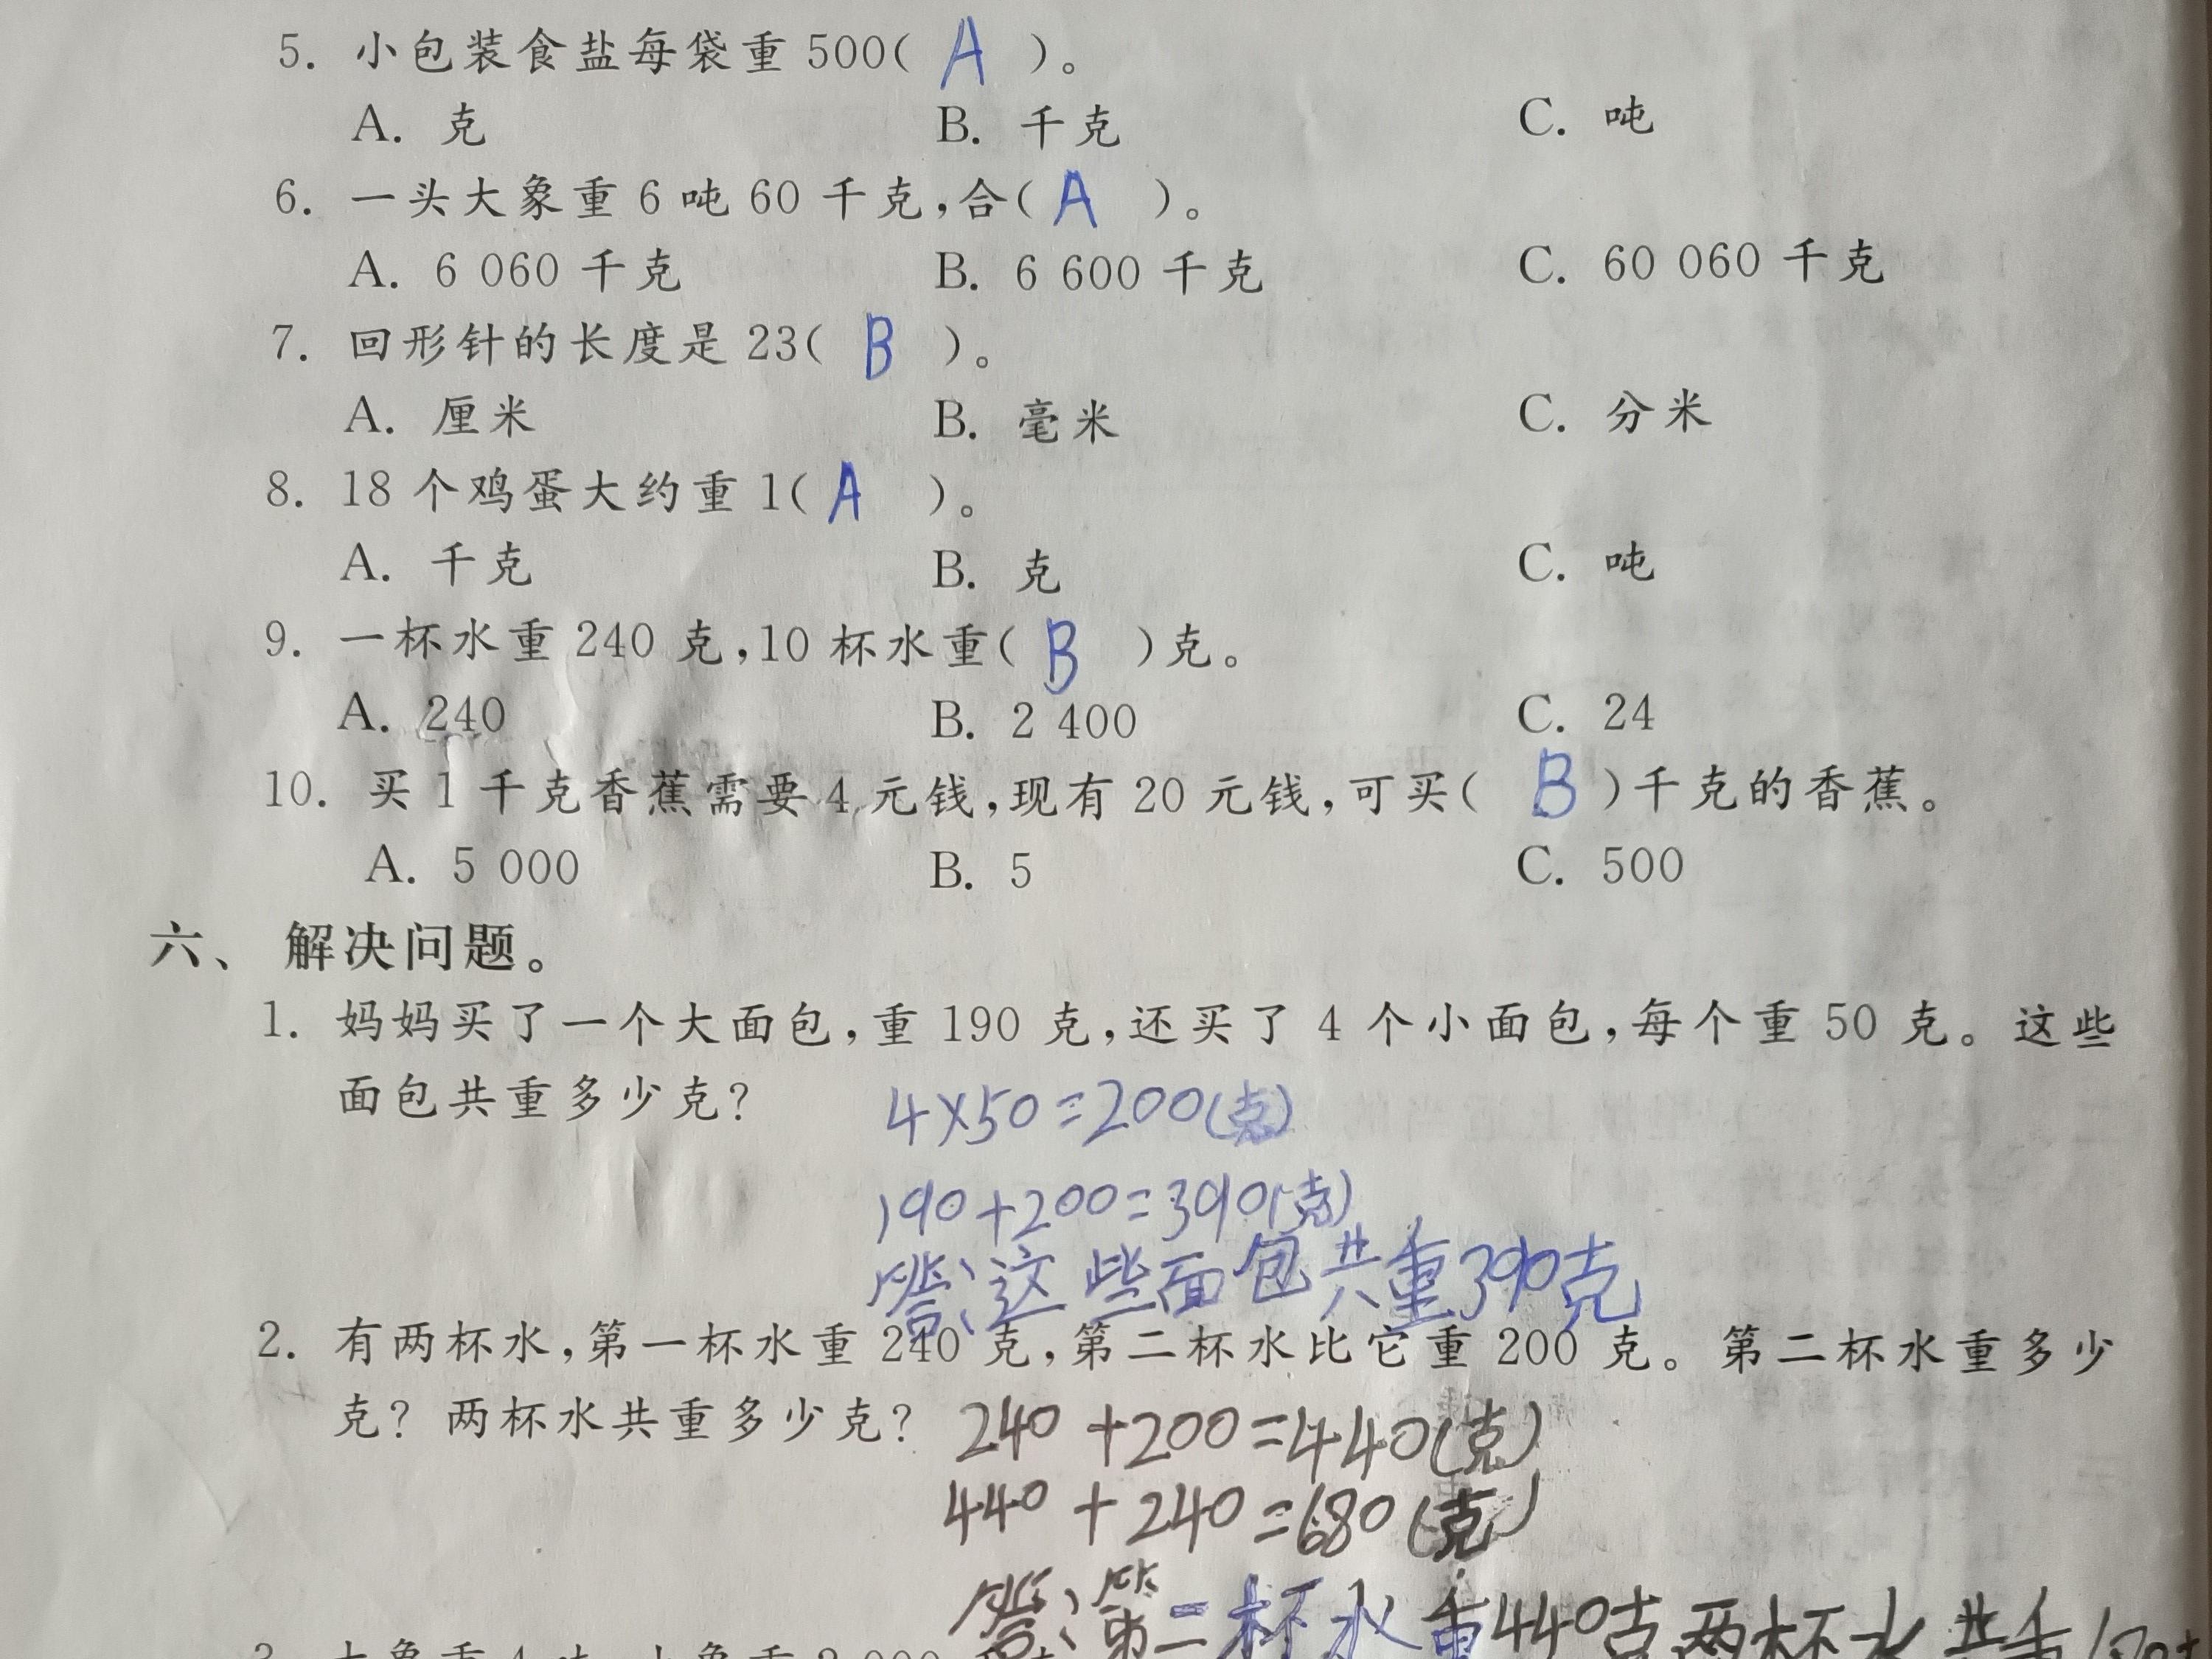 5. 小包装食盐每袋重 500( A )。
A. 克 B. 千克 C. 吨
6. 一头大象重 6 吨 60 千克,合( A )。
A. 6 060 千克 B. 6 600 千克 C. 60 060 千克
7. 回形针的长度是 23( B )。
A. 厘米 B. 毫米 C. 分米
8. 18 个鸡蛋大约重 1( A )。
A. 千克 B. 克 C. 吨
9. 一杯水重 240 克,10 杯水重( B )克。
A. 240 B. 2 400 C. 24
10. 买 1 千克香蕉需要 4 元钱,现有 20 元钱,可买( B )千克的香蕉。
A. 5 000 B. 5 C. 500
六、 解决问题。
1. 妈妈买了一个大面包,重 190 克,还买了 4 个小面包,每个重 50 克。这些
面包共重多少克? 4×50=200(克)
190+200=390(克)
答:这些面包共重390克
2. 有两杯水,第一杯水重 240 克,第二杯水比它重 200 克。第二杯水重多少
克? 两杯水共重多少克? 240+200=440(克)
440+240=680(克)
答:第二杯水重440克两杯水共重